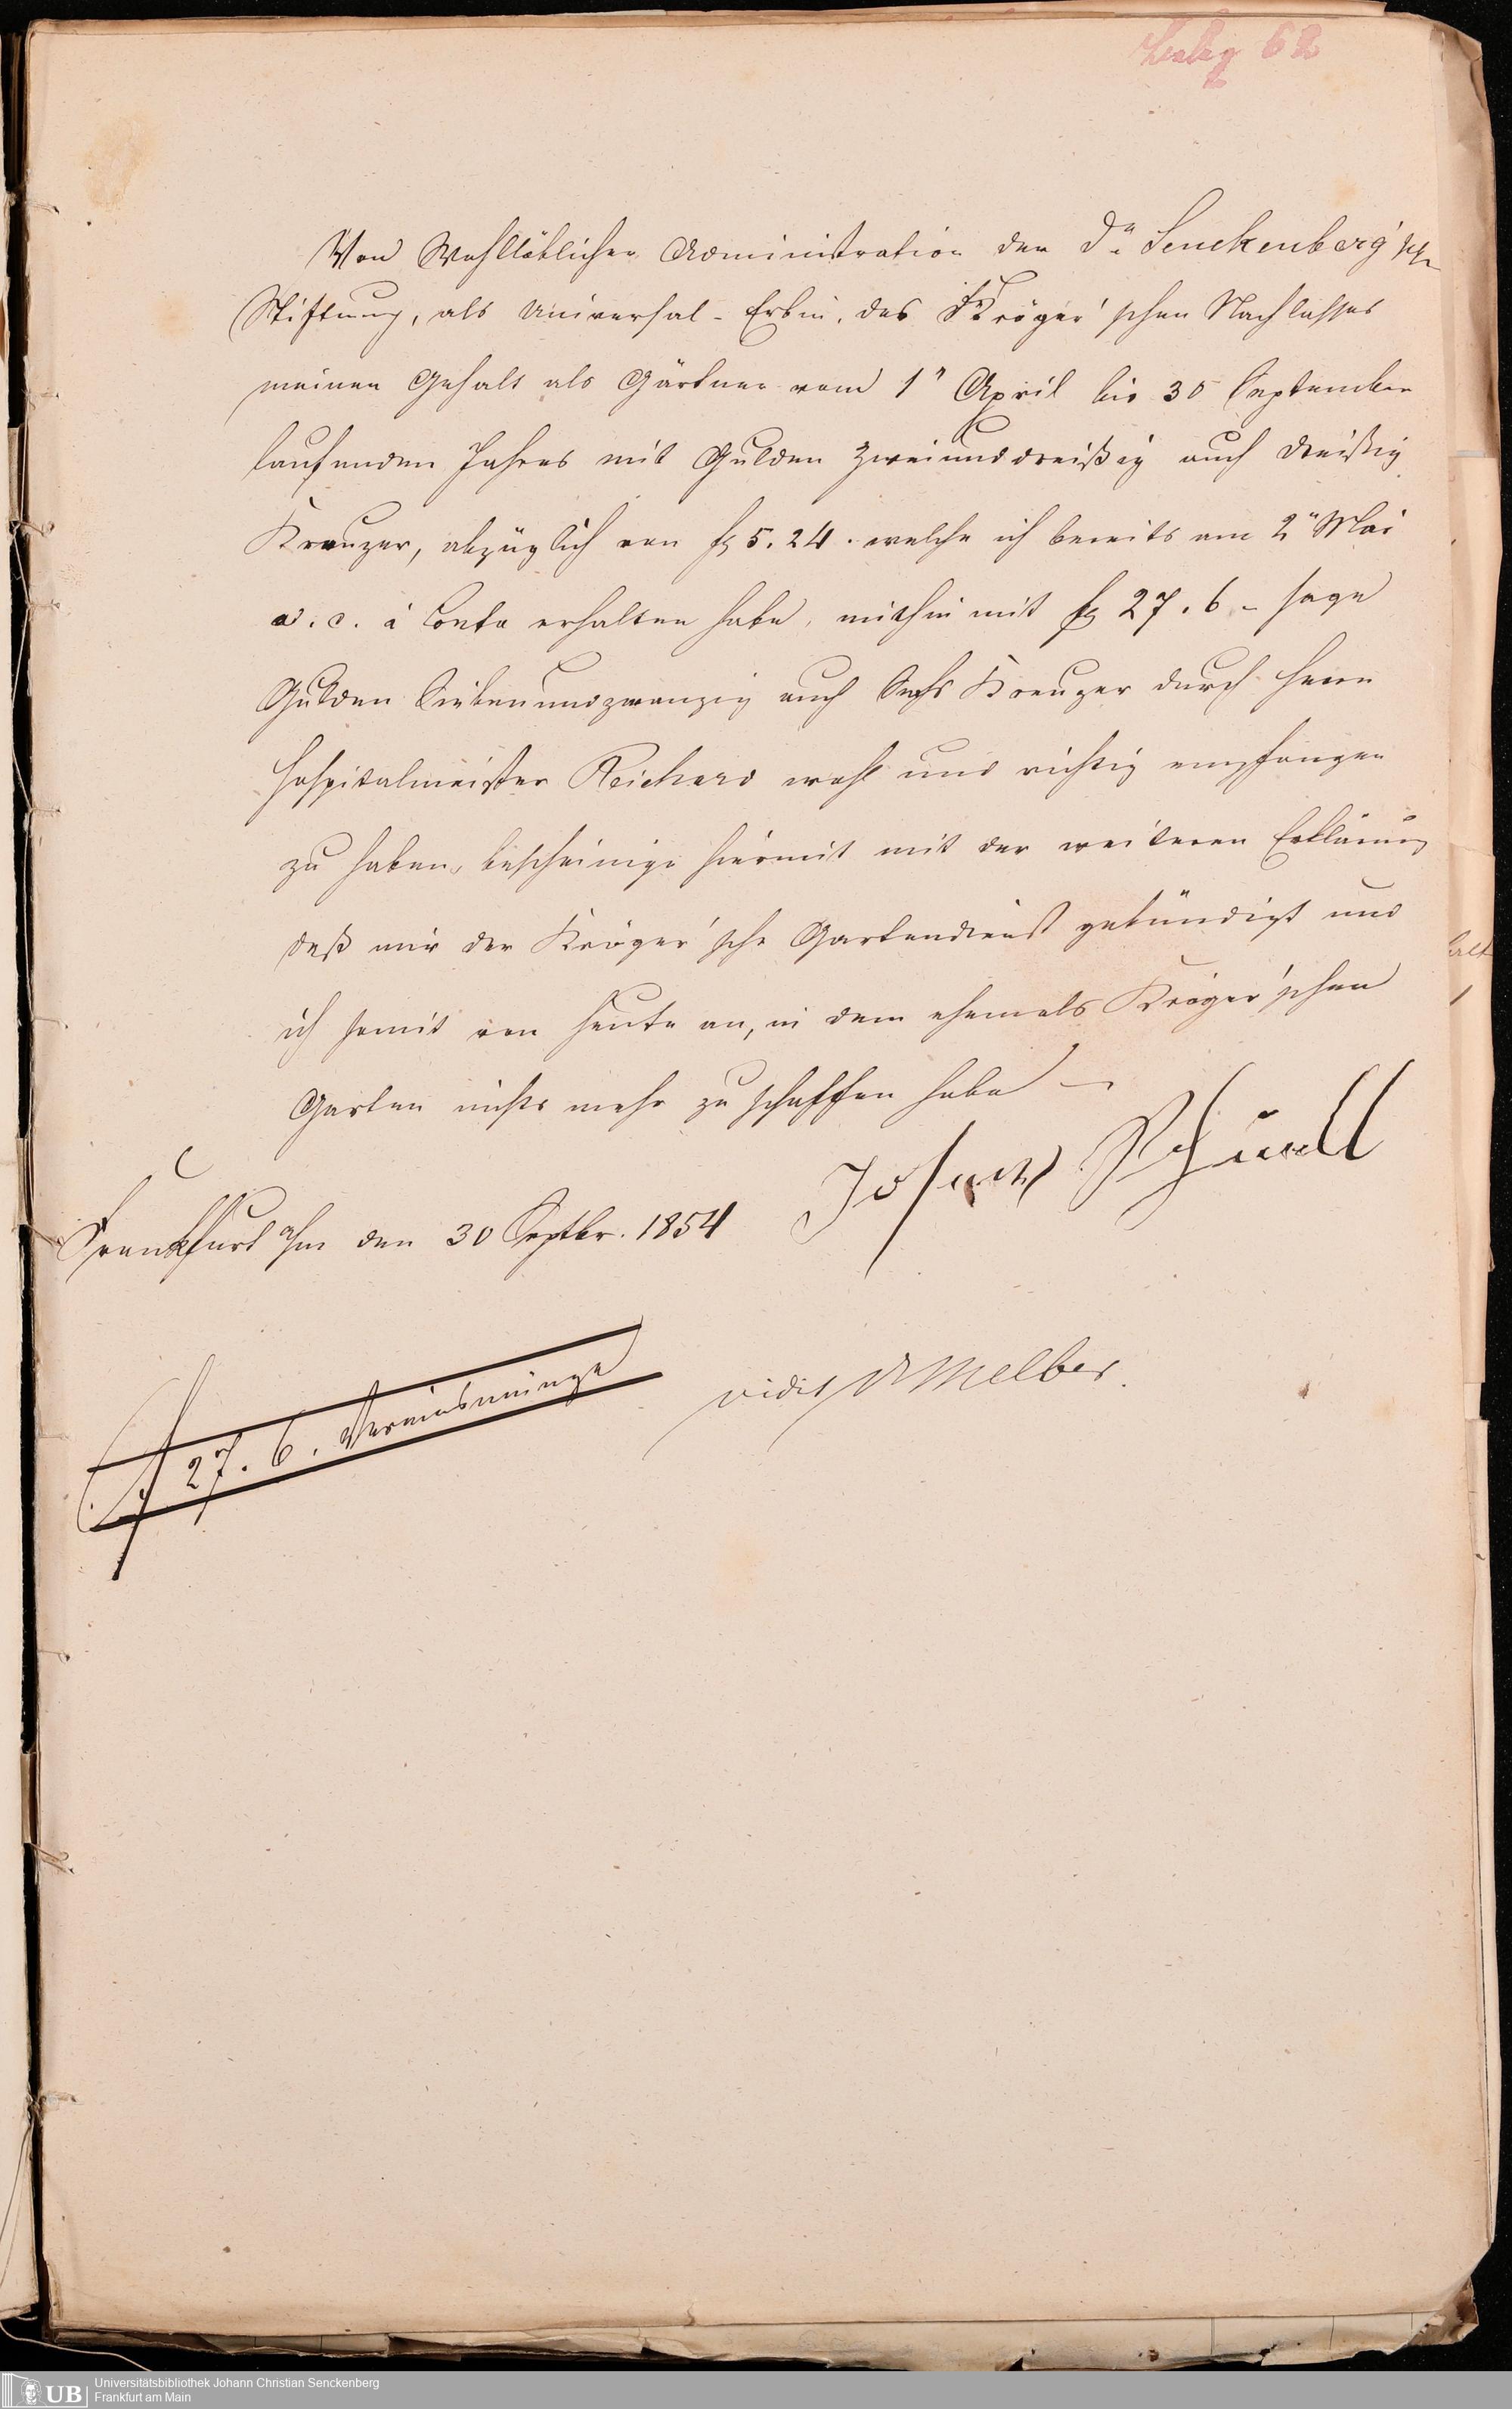 Beleg 62
Von Wohllöblicher Administration der Dr. Senckenberg'sche
Stiftung, als Universal-Erbin, des Kröger'schen Nachlasses
meinen Gehalt als Gärtner vom 1n April bis 30 September
laufenden Jahres mit Gulden zweiunddreißig auch dreißig
Kreuzer, abzüglich von f 5.24. welche ich bereits am 2n Mai
a. c. à Conto erhalten habe, mithin mit f 27.6 - sage
Gulden Siebenundzwanzig auch Sechs Kreuzer durch Herrn
Hospitalmeister Reichard wohl und richtig empfangen
zu haben, bescheinige hiermit mit der weiteren Erklärung
daß mir der Kröger'sche Gartendienst gekündigt und
ich somit von heute an, in dem ehemals Kröger'schen
Garten nichts mehr zu schaffen habe
Frankfurt a/m den 30 Septbr. 1854
f 27.6. Vereinsmünze
vidit Dr Melber.
Universitätsbibliothek Johann Christian Senckenberg
UB
Frankfurt am Main